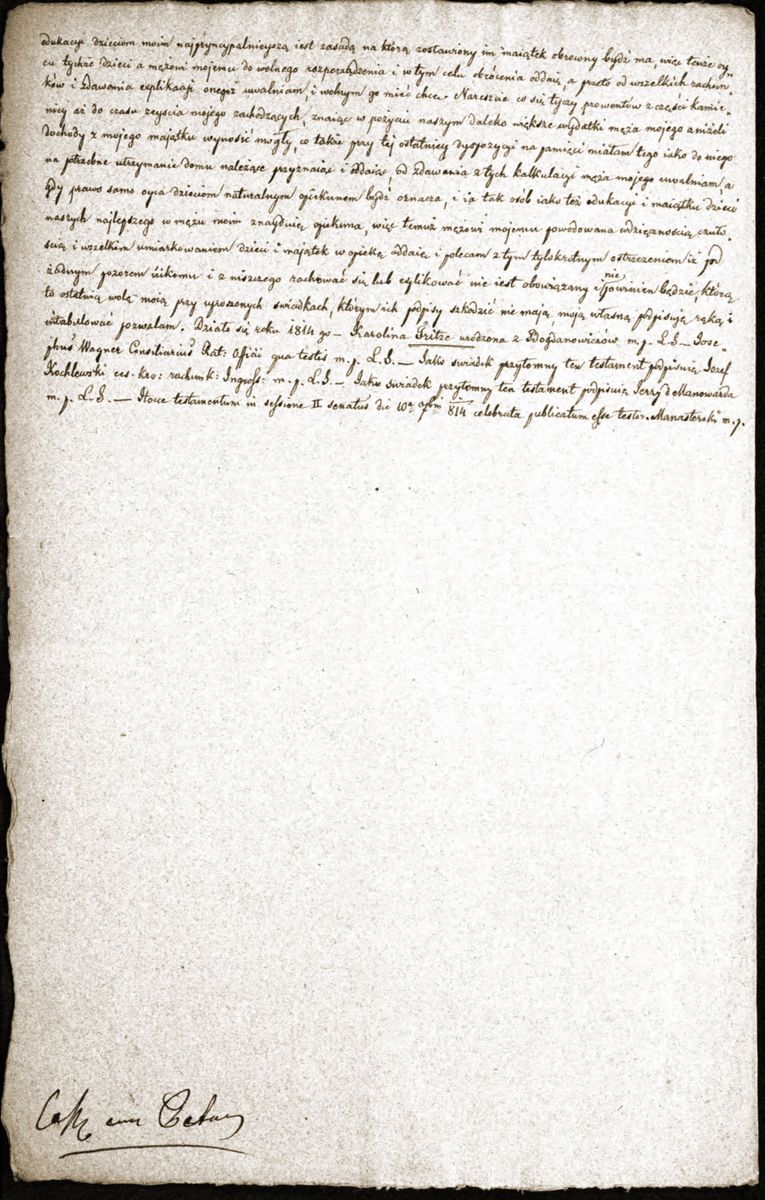 edukacyi dzieciom moim najpryncypalnieyszą iest zasadą na którą zostawiony im maiątek obrócony bydź ma, więc tenże oy-
cu tychże dzieci a mężowi mojemu do wolnego rozporządzenia i w tym celu obrócenia oddaię, a przeto od wszelkich rachun-
ków i zdawania explikacyi onegoż uwalniam, i wolnym go mieć chcę. Nareszcie co się tyczy prowentów z części kamie-
nicy aż do czasu zeyścia mojego zachodzących, znaiąc w pożyciu naszym daleko większe wydatki męża mojego aniżeli
dochody z mojego maiątku wynosić mogły, co także przy tej ostatniey dyspozycyi na pamięci miałam tego iako do niego
na potrzebne utrzymanie domu należące przyznaię i oddaię, od zdawania z tych kalkulacyi męża mojego uwalniam a
gdy prawo samo oyca dzieciom naturalnym opiekunem bydź oznacza, i ia tak osób iako też edukacyi i maiątku dzieci
naszych najlepszego w mężu moim znayduię opiekuna, więc temuż mężowi mojemu powodowana wdzięcznością, czuło-
ścią i wszelkim umiarkowaniem dzieci i majątek w opiekę oddaię i polecam z tym tylokrotnym ostrzeżeniem iż pod
żadnym pozorem nikomu i z niczego rachować się lub explikować nie iest obowiązany i nie powinien będzie, którą
to ostatnią wolę moią przy uproszonych świadkach, którym ich podpisy szkodzić nie mają, moją własną podpisuię ręką i
intabulować pozwalam. Działo się roku 1814go — Karolina Gritze urodzona z Bogdanowiczów m. p. L. S. — Jose-
phus Wagner Consiliarius Rat: Officii qua testis m. p. L. S. — Jako swiadek przytomny ten testament podpisuię Jozef
Kochlewski ces. kro: rachunk: Ingross: m. p. L. S. — Jako swiadek przytomny ten testament podpisuię Jerzy d Manowarda
m. p. L. S. — Hocce testamentum in sessione II senatus die 10a 814 celebrata publicatum esse testor. Manasterski m. p.